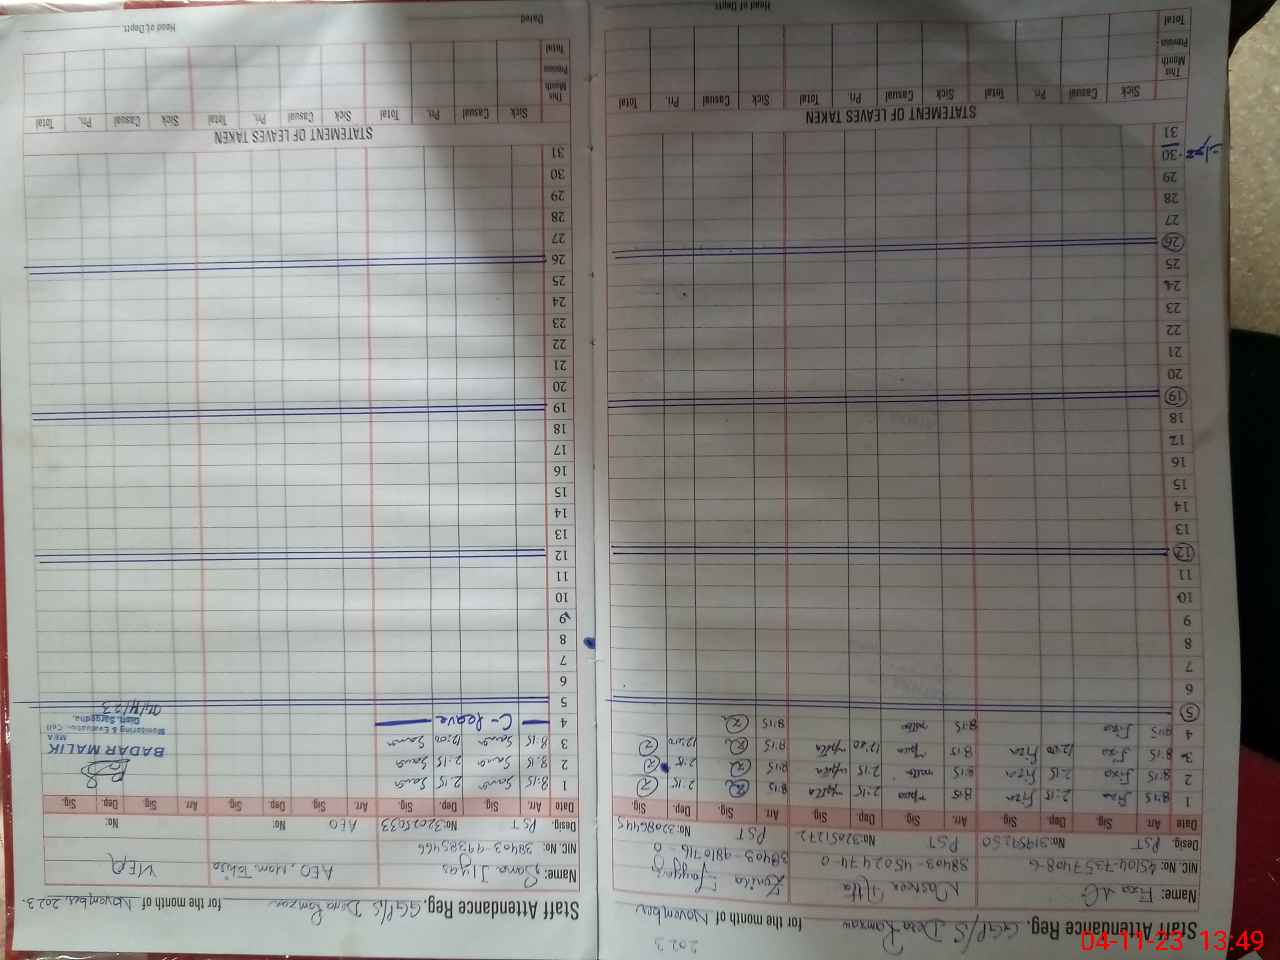 Staff Attendance Reg. GGP/S Dera Ramzan for the month of November 2023
Name: Fiza
NIC. No: 45104-7357408-6 38403-4502474-0 38403-4810716-0
Desig. PST No: PST No: 32051272 PST No: 32086445
Date Arr. Sig. Dep. Sig. Arr. Sig. Dep. Sig. Arr. Sig. Dep. Sig.
1 8:15 Fiza 2:15 Fiza 8:15 2:15 8:15 2:15
2 8:15 Fiza 2:15 Fiza 8:15 2:15 8:15 2:15
3 8:15 Fiza 12:00 Fiza 8:15 12:00 8:15 12:00
4 8:15 Fiza 8:15 8:15
5
6
7
8
9
10
11
12
13
14
15
16
17
18
19
20
21
22
23
24
25
26
27
28
29
30
31
STATEMENT OF LEAVES TAKEN
Sick Casual Pri. Total Sick Casual Pri. Total Sick Casual Pri. Total
This Month
Previous
Total
Head of Deptt.
Staff Attendance Reg. GGP/S Dera Ramzan for the month of November, 2023.
Name: Sana Ilyas AEO, MEA
NIC. No: 38403-4938546-6
Desig. PST No: 32025033 AEO No: No:
Date Arr. Sig. Dep. Sig. Arr. Sig. Dep. Sig. Arr. Sig. Dep. Sig.
1 8:15 Sana 2:15 Sana
2 8:15 Sana 2:15 Sana
3 8:15 Sana 12:00 Sana
4 C-leave
BADAR MALIK
MEA
Monitoring & Evaluation Cell
Distt. Sargodha.
04/11/23
5
6
7
8
9
10
11
12
13
14
15
16
17
18
19
20
21
22
23
24
25
26
27
28
29
30
31
STATEMENT OF LEAVES TAKEN
Sick Casual Pri. Total Sick Casual Pri. Total Sick Casual Pri. Total
This Month
Previous
Total
Dated Head of Deptt.
04-11-23 13:49